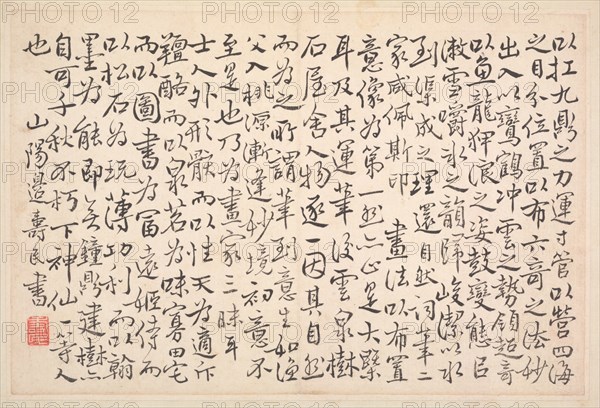 以扛九鼎之力運寸管以營四海
之目分位置以布六奇之法妙
出入以鸞鶴冲雲之勢領超奇
以魚龍狎浪之姿鼓變態以
漱雪嚼冰之韻歸峻潔以水
到渠成之理還自然詞筆二
家咸佩斯印 畫法以布置
意像為第一然亦止是大槩
耳及其運筆後雲泉樹
石屋舍人物逐一因其自然
而為之所謂筆到意生如漁
父入桃源漸逢妙境初意不
至是也乃為畫家三昧耳
士人外形骸而以性天為適
羶酪而以泉茗為味寡田宅
而以圖書為富遠姬侍而
以松石為玩薄功利而以翰
墨為能即無鐘鼎建樹亦
自可千秋不朽下神仙一等人
也 山陽邊壽民書